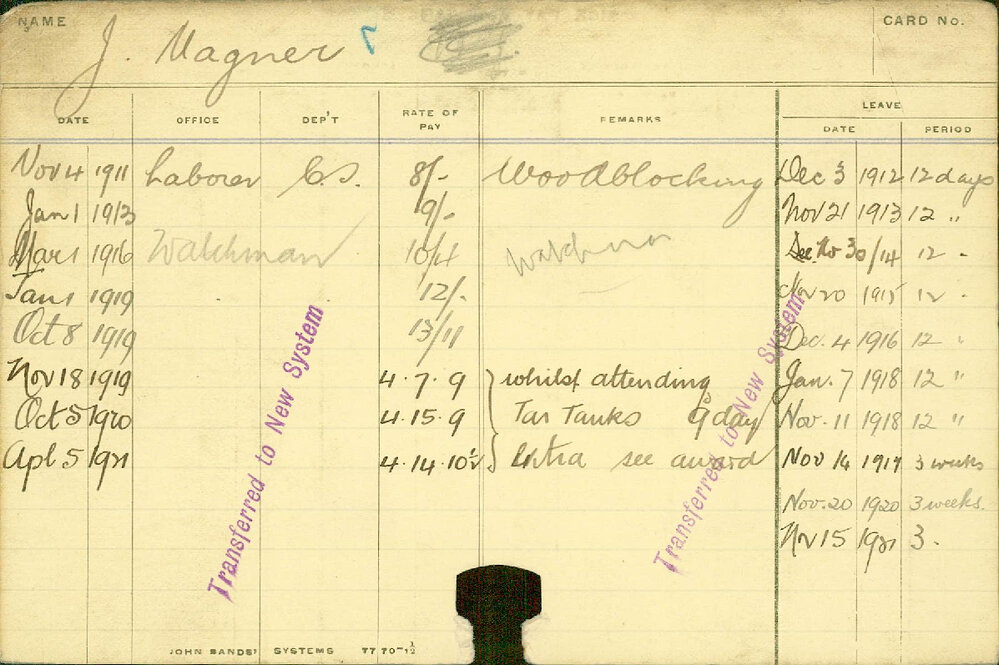 NAME
CARD No.
J. Wagner
LEAVE
DATE OFFICE DEP'T RATE OF PAY REMARKS DATE PERIOD
Nov 4 1911 Laborer C.S. 8/- Woodblocking Dec 3 1912 12 days
Jan 1 1913 9/- Nov 21 1913 12 "
Mar 1 1916 Watchman 10/4 Watchman Nov 30/14 12 -
Jan 1 1919 12/- Nov 20 1915 12 -
Oct 8 1919 13/11 Dec. 4 1916 12 "
Nov 18 1919 4.7.9 whilst attending Jan. 7 1918 12 "
Oct 5 1920 4.15.9 Tar Tanks 9d day Nov. 11 1918 12 "
Apl 5 1921 4.14.10½ Extra see award Nov 14 1919 3 weeks
Nov. 20 1920 3 weeks.
Nov 15 1921 3.
Transferred to New System
Transferred to New System
JOHN SANDS' SYSTEMS 7770-½